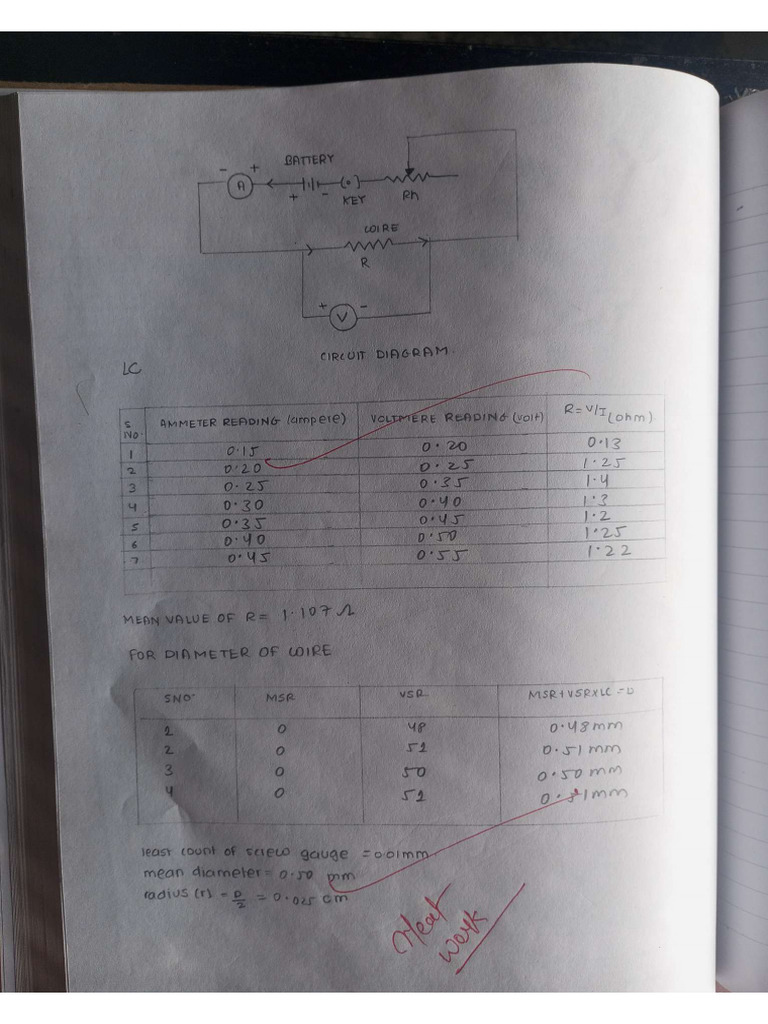 BATTERY
- +
A
+ -
KEY
Rh
WIRE
R
+ -
V
CIRCUIT DIAGRAM.
LC
S No. AMMETER READING (ampere) VOLTMERE READING (volt) R = V/I (ohm).
1 0.15 0.20 0.13
2 0.20 0.25 1.25
3 0.25 0.35 1.4
4 0.30 0.40 1.3
5 0.35 0.45 1.2
6 0.40 0.50 1.25
7 0.45 0.55 1.22
MEAN VALUE OF R = 1.107 Ω
FOR DIAMETER OF WIRE
SNO. MSR VSR MSR+VSRXLC = D
2 0 48 0.48mm
2 0 51 0.51mm
3 0 50 0.50 mm
4 0 51 0.51mm
least count of screw gauge = 0.01mm
mean diameter = 0.50 mm
radius (r) = D/2 = 0.025 cm
Neat
work